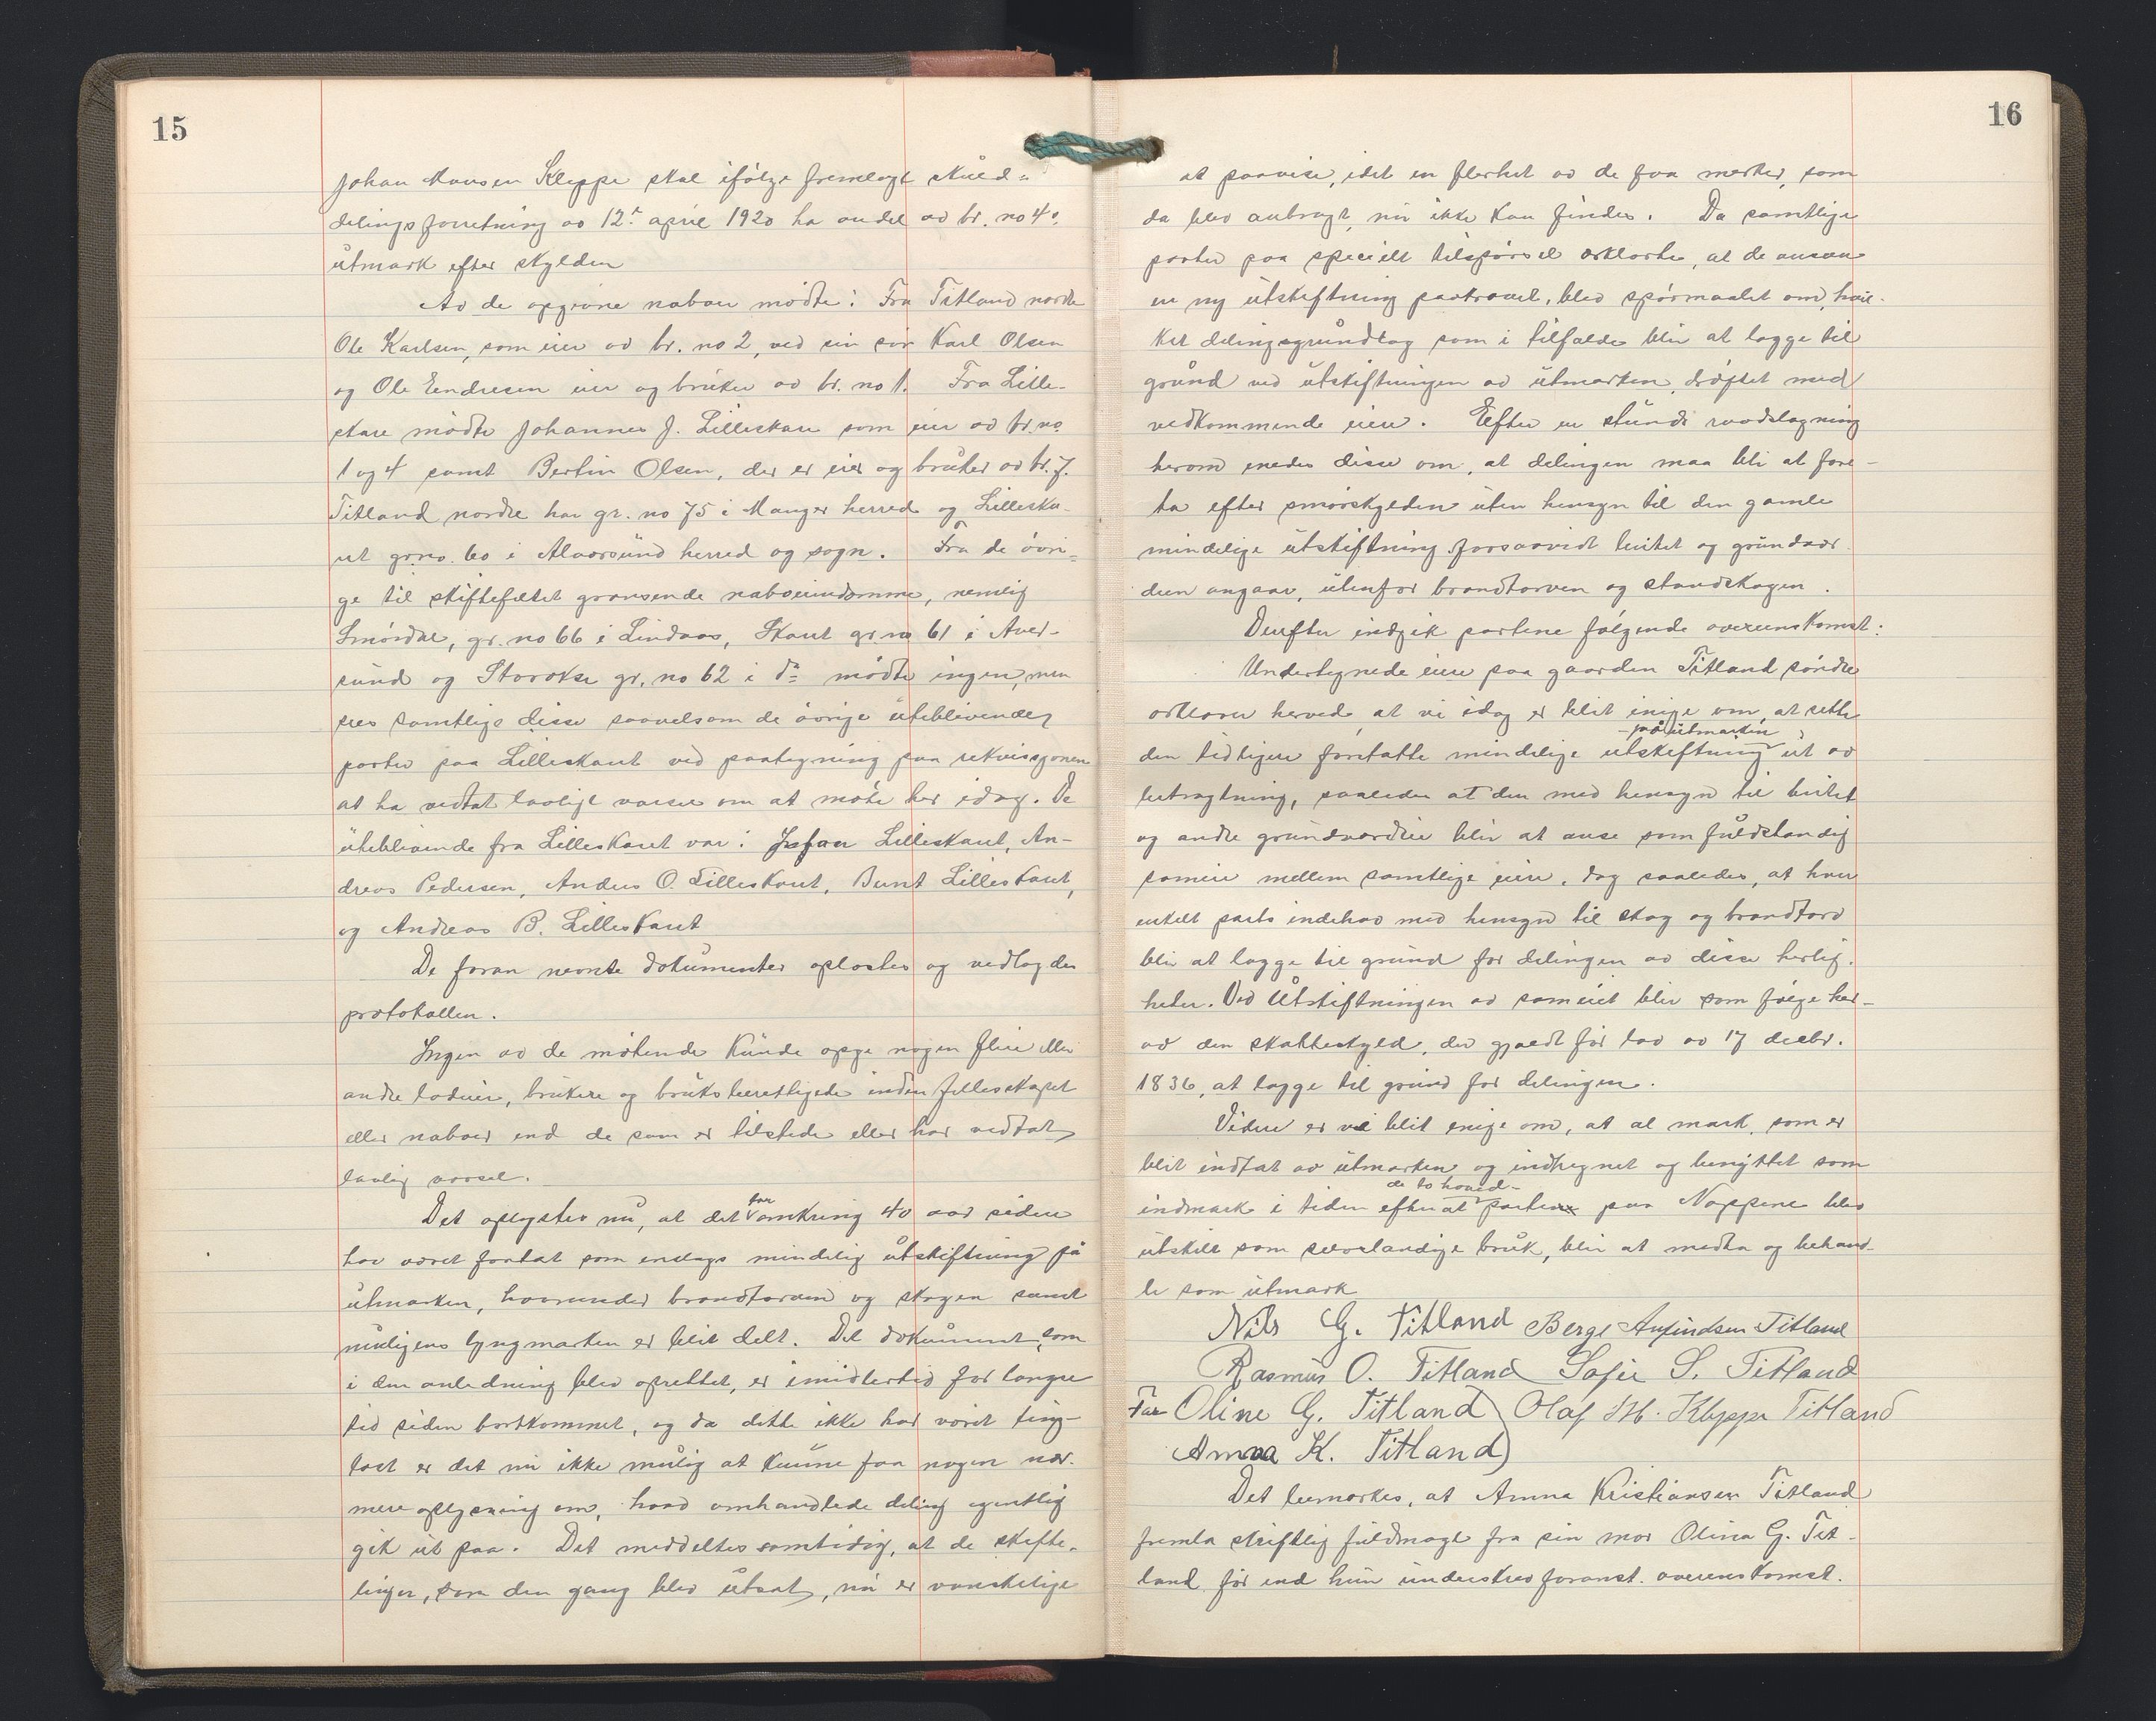 15
Johan Monsen Kleppe skal ifølge fremlagt skyld-
delingsforretning av 12te april 1920 ha andel av br. no 4s
utmark efter skylden
Av de opgivne naboer møtte: Fra Titland nordre
Ole Karlsen, som eier av br. no 2, ved sin søn Karl Olsen
og Ole Eendresen eier og bruker av br. no 1. Fra Lille-
skare møtte Johannes J. Lilleskare som eier av br. no
1 og 4 samt Bertin Olsen, der er eier og bruker av br. 7.
Titland nordre har gr. no 75 i Manger herred og Lilleska-
ret gr. no. 60 i Alversund herred og sogn. Fra de øvri-
ge til skiftefeltet grænsende naboeiendomme, nemlig
Smørdal, gr. no 66 i Lindaas, Skaut gr. no 61 i Alver-
sund og Storokse gr. no 62 i do møtte ingen, men
sees samtlige disse saavelsom de øvrige uteblivende
parter paa Lilleskaret ved paategning paa rekvisisjonen
at ha vedtat lovlig varsel om at møte her idag. De
uteblivende fra Lilleskaret var: Josfar Lilleskaret, An-
dreas Pedersen, Anders O. Lilleskaret, Bernt Lilleskaret,
og Andreas B. Lilleskaret
De foran nevnte dokumenter oplæstes og vedlægdes
protokollen.
Ingen av de møtende kunde opgi nogen flere eller
andre lodeier, brukere og bruksberettigede inden fellesskapet
eller naboer end de som er tilstede eller har vedtat
lovlig varsel.
Det oplystes nu, at det for omkring 40 aar siden
har været foretat som endags mindelig utskiftning på
utmarken, hvorunder brandtorven og skogen samt
muligens lyngmarken er blit delt. Det dokument, som
i den anledning blev oprettet, er imidlertid for længre
tid siden bortkommet, og da dette ikke har været ting-
læst er det nu ikke mulig at kunne faa nogen nær-
mere oplysning om, hvad omhandlede deling egentlig
gik ut paa. Det meddeltes samtidig, at de skifte-
linjer, som den gang blev utsat, nu er vanskelige
16
at paavise, idet en flerhet av de faa merker, som
da blev anbragt, nu ikke kan findes. Da samtlige
parter paa specielt tilspørsel erklærte, at de ansaa
en ny utskiftning paakrævet, blev spørmaalet om, hvil-
ket delingsgrundlag som i tilfælde blir at lægge til
grund ved utskiftningen av utmarken drøftet med
vedkommende eiere. Eefter en stunds raadslagning
herom enedes disse om, at delingen maa bli at fore-
ta efter smørskylden uten hensyn til den gamle
mindelige utskiftning forsaavidt beitet og grundvær-
dien angaar, utenfor brandtorven og standskogen.
Derefter indgik partene følgende overenskomst:
Undertegnede eiere paa gaarden Titland søndre
erklærer herved, at vi idag er blit enige om, at sette
på utmarken
den tidligere foretatte mindelige utskiftning ut av
betragtning, saaledes at den med hensyn til beitet
og andre grundværdier blir at anse som fuldstændig
sameie mellem samtlige eiere, dog saaledes, at hver
enkelt parts indehav med hensyn til skog og brandtorv
blir at lægge til grund for delingen av disse herlig-
heter. Ved Utskiftningen av sameiet blir som følge her-
av den skatteskyld, der gjaldt før lov av 17 decbr.
1836, at lægge til grund for delingen.
Videre er vi blit enige om, at al mark, som er
blit indtat av utmarken og indhegnet og benyttet som
de to hoved-
indmark i tiden efter at parter paa Nappene blev
utskilt som selvstændige bruk, blir at medta og behand-
le som utmark
Nils G. Titland Berge Anfindsen Titland
Rasmus O. Titland Sofie S. Titland
For Oline G. Titland Olaf M. Kleppe Titland
Anna K. Titland
Det bemerkes, at Anna Kristiansen Titland
fremla skriftlig fuldmagt fra sin mor Olina G. Tit-
land før end hun underskrev foranst. overenskomst.